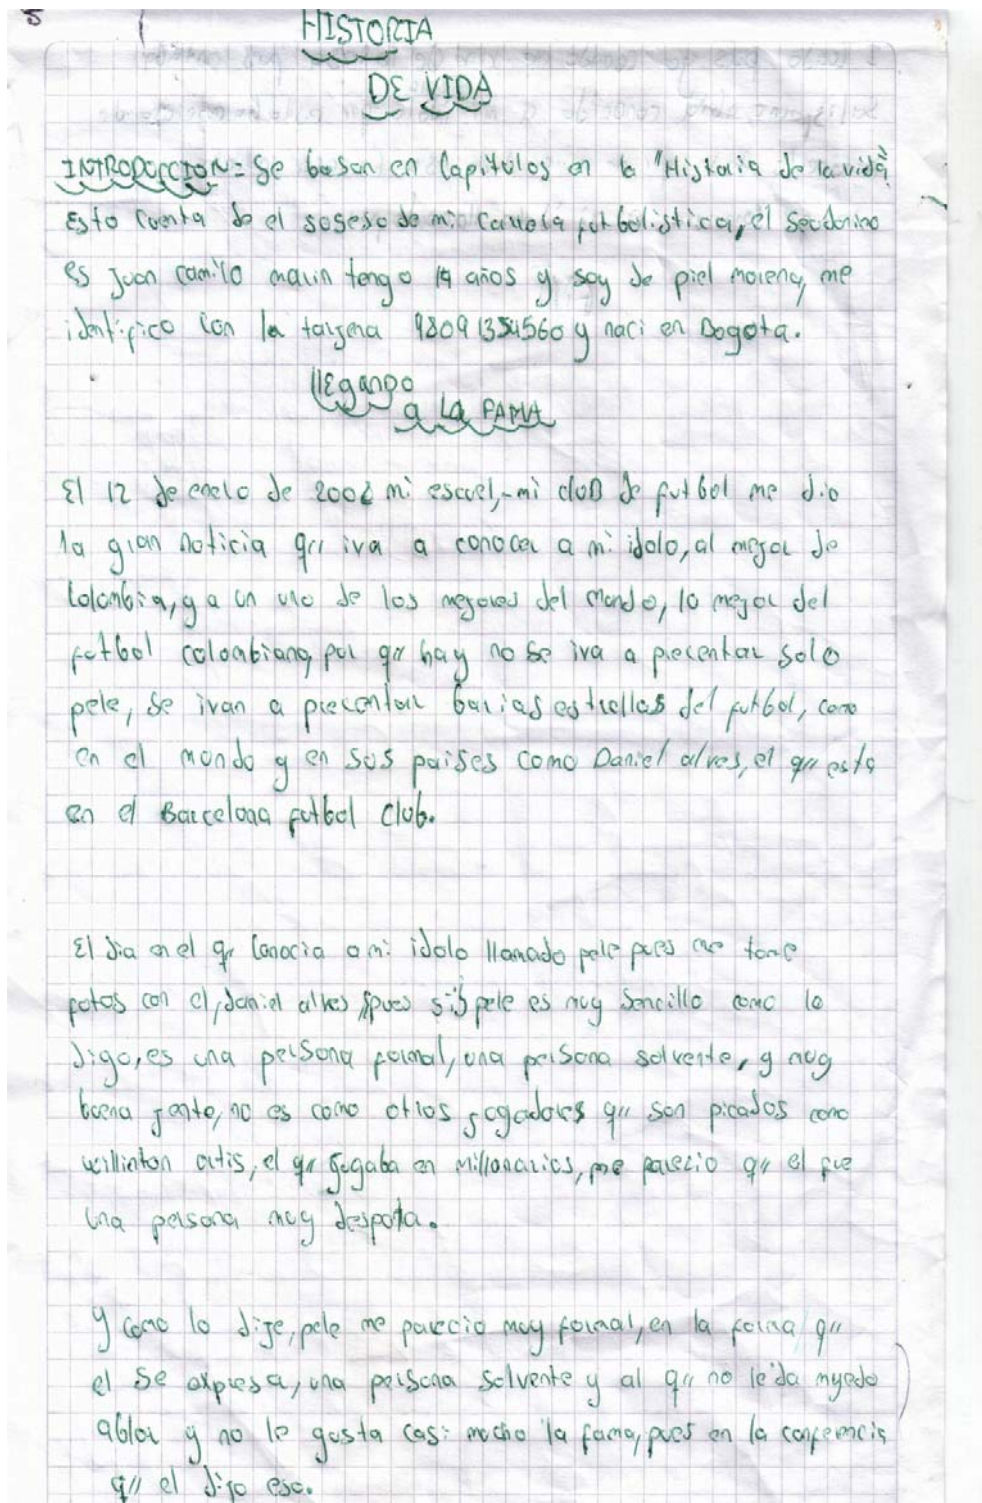 HISTORIA
DE VIDA
INTRODUCCION= Se basan en Capitulos en la "Historia de la vida"
Esto Cuenta de el soseso de mi Carrera futbolistica, el Seudonimo
es Juan camilo marin tengo 14 años y soy de piel morena, me
identifico con la targena y naci en Bogota.
llegando
a la FAMA
El 12 de enero de mi escuel,-mi cluB de futbol me dio
la gran noticia qu iva a conocer a mi idolo, al mejor de
Colombia, y a un uno de los mejores del mundo, lo mejor del
futbol colombiano, por qu hay no se iva a precentar solo
pele, se ivan a precentar barias estrellas del futbol, como
en el mundo y en sus paises como Daniel alves, el qu esta
en el Barcelona futbol Club.
El dia en el qu Conocia a mi idolo llamado pele pues me tome
fotos con el, daniel alves pues si pele es muy sencillo como lo
digo, es una persona formal, una persona solvente, y muy
buena jente, no es como otros jogadores qu son picados como
willinton ortis, el qu jugaba en Millonarios, me parecio qu el fue
una persona muy despota.
y como lo dije, pele me parecio muy formal, en la forma qu
el se expresa, una persona solvente y al qu no le da myedo
ablar y no le gusta casi mucho la fama, pues en la conferencia
qu el dijo eso.